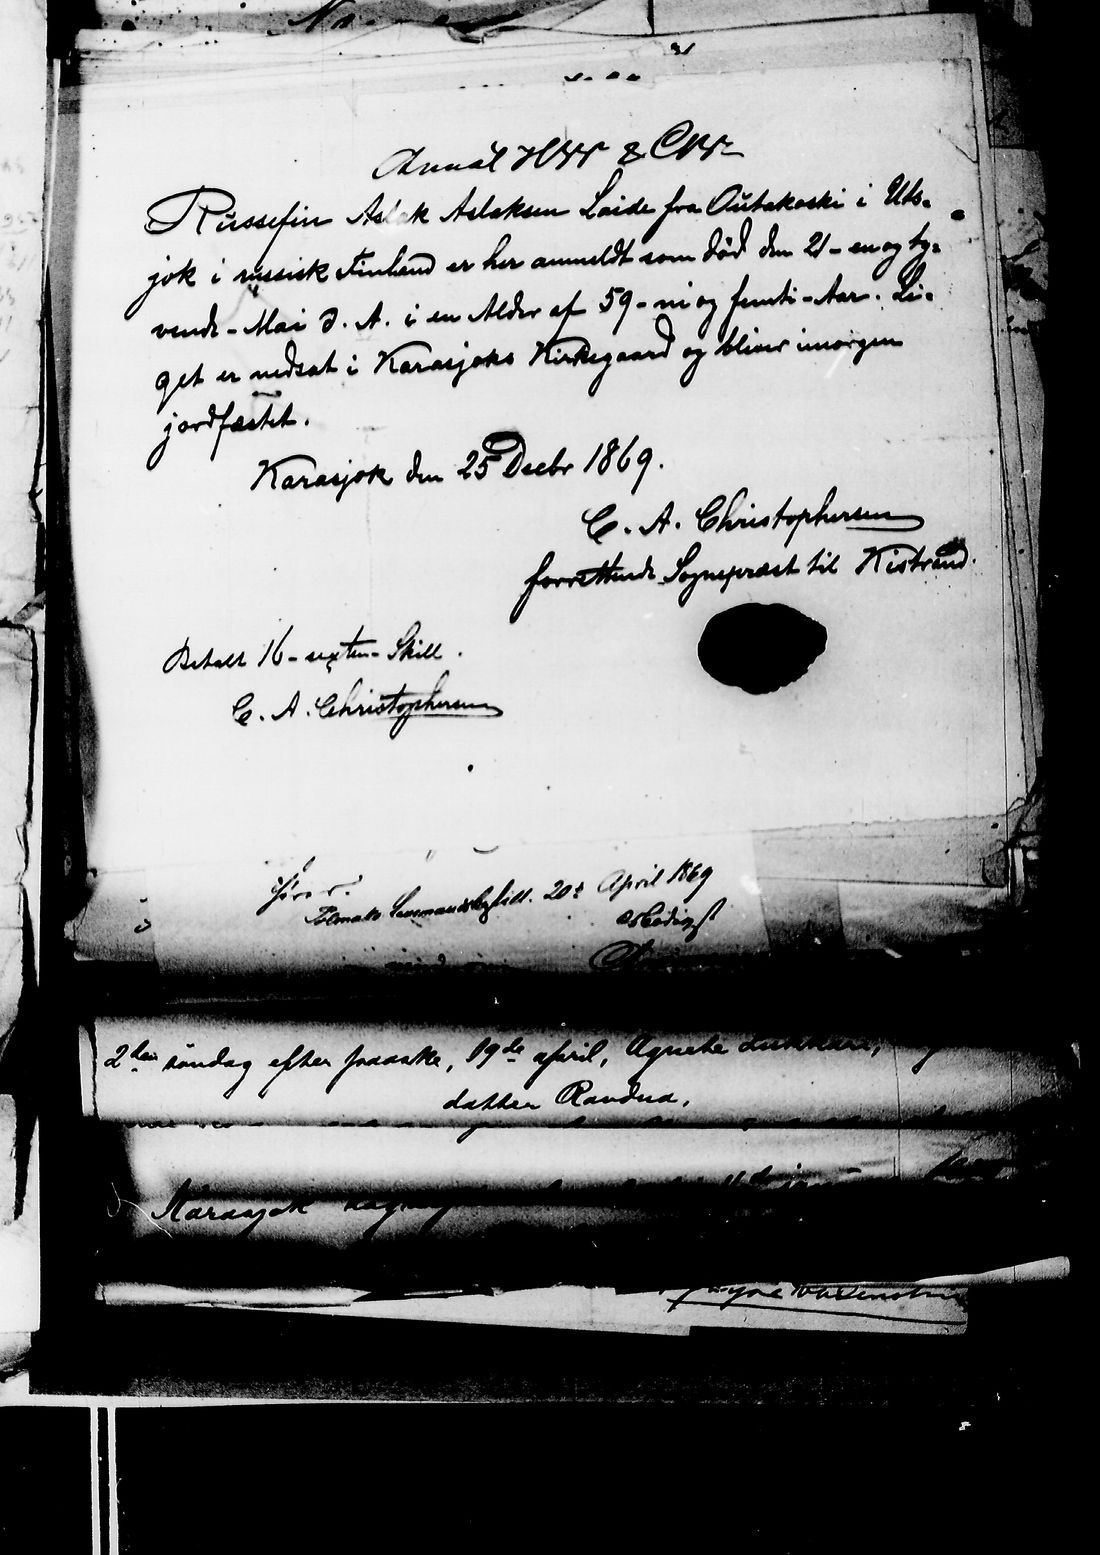 Russefin Aslak Aslaksen Laide fra Outakoski i Uts-
jok i russisk Finland er her anmeldt som død den 21 - en og ty-
vende - Mai d. A. i en Alder af 59 - ni og femti - Aar. Li-
get er nedsat i Karasjoks Kirkegaard og bliver imorgen
jordfæstet.
Karasjok den 25 Decbr 1869.
C. A. Christophersen
forrettende Sognepræst til Kistrand.
Betalt 16 - sexten - Skill.
C. A. Christophersen
20de April 1869
ærbødigst
2den søndag efter paaske, 19de april, Agnete
datter Ravdna.
Karasjok